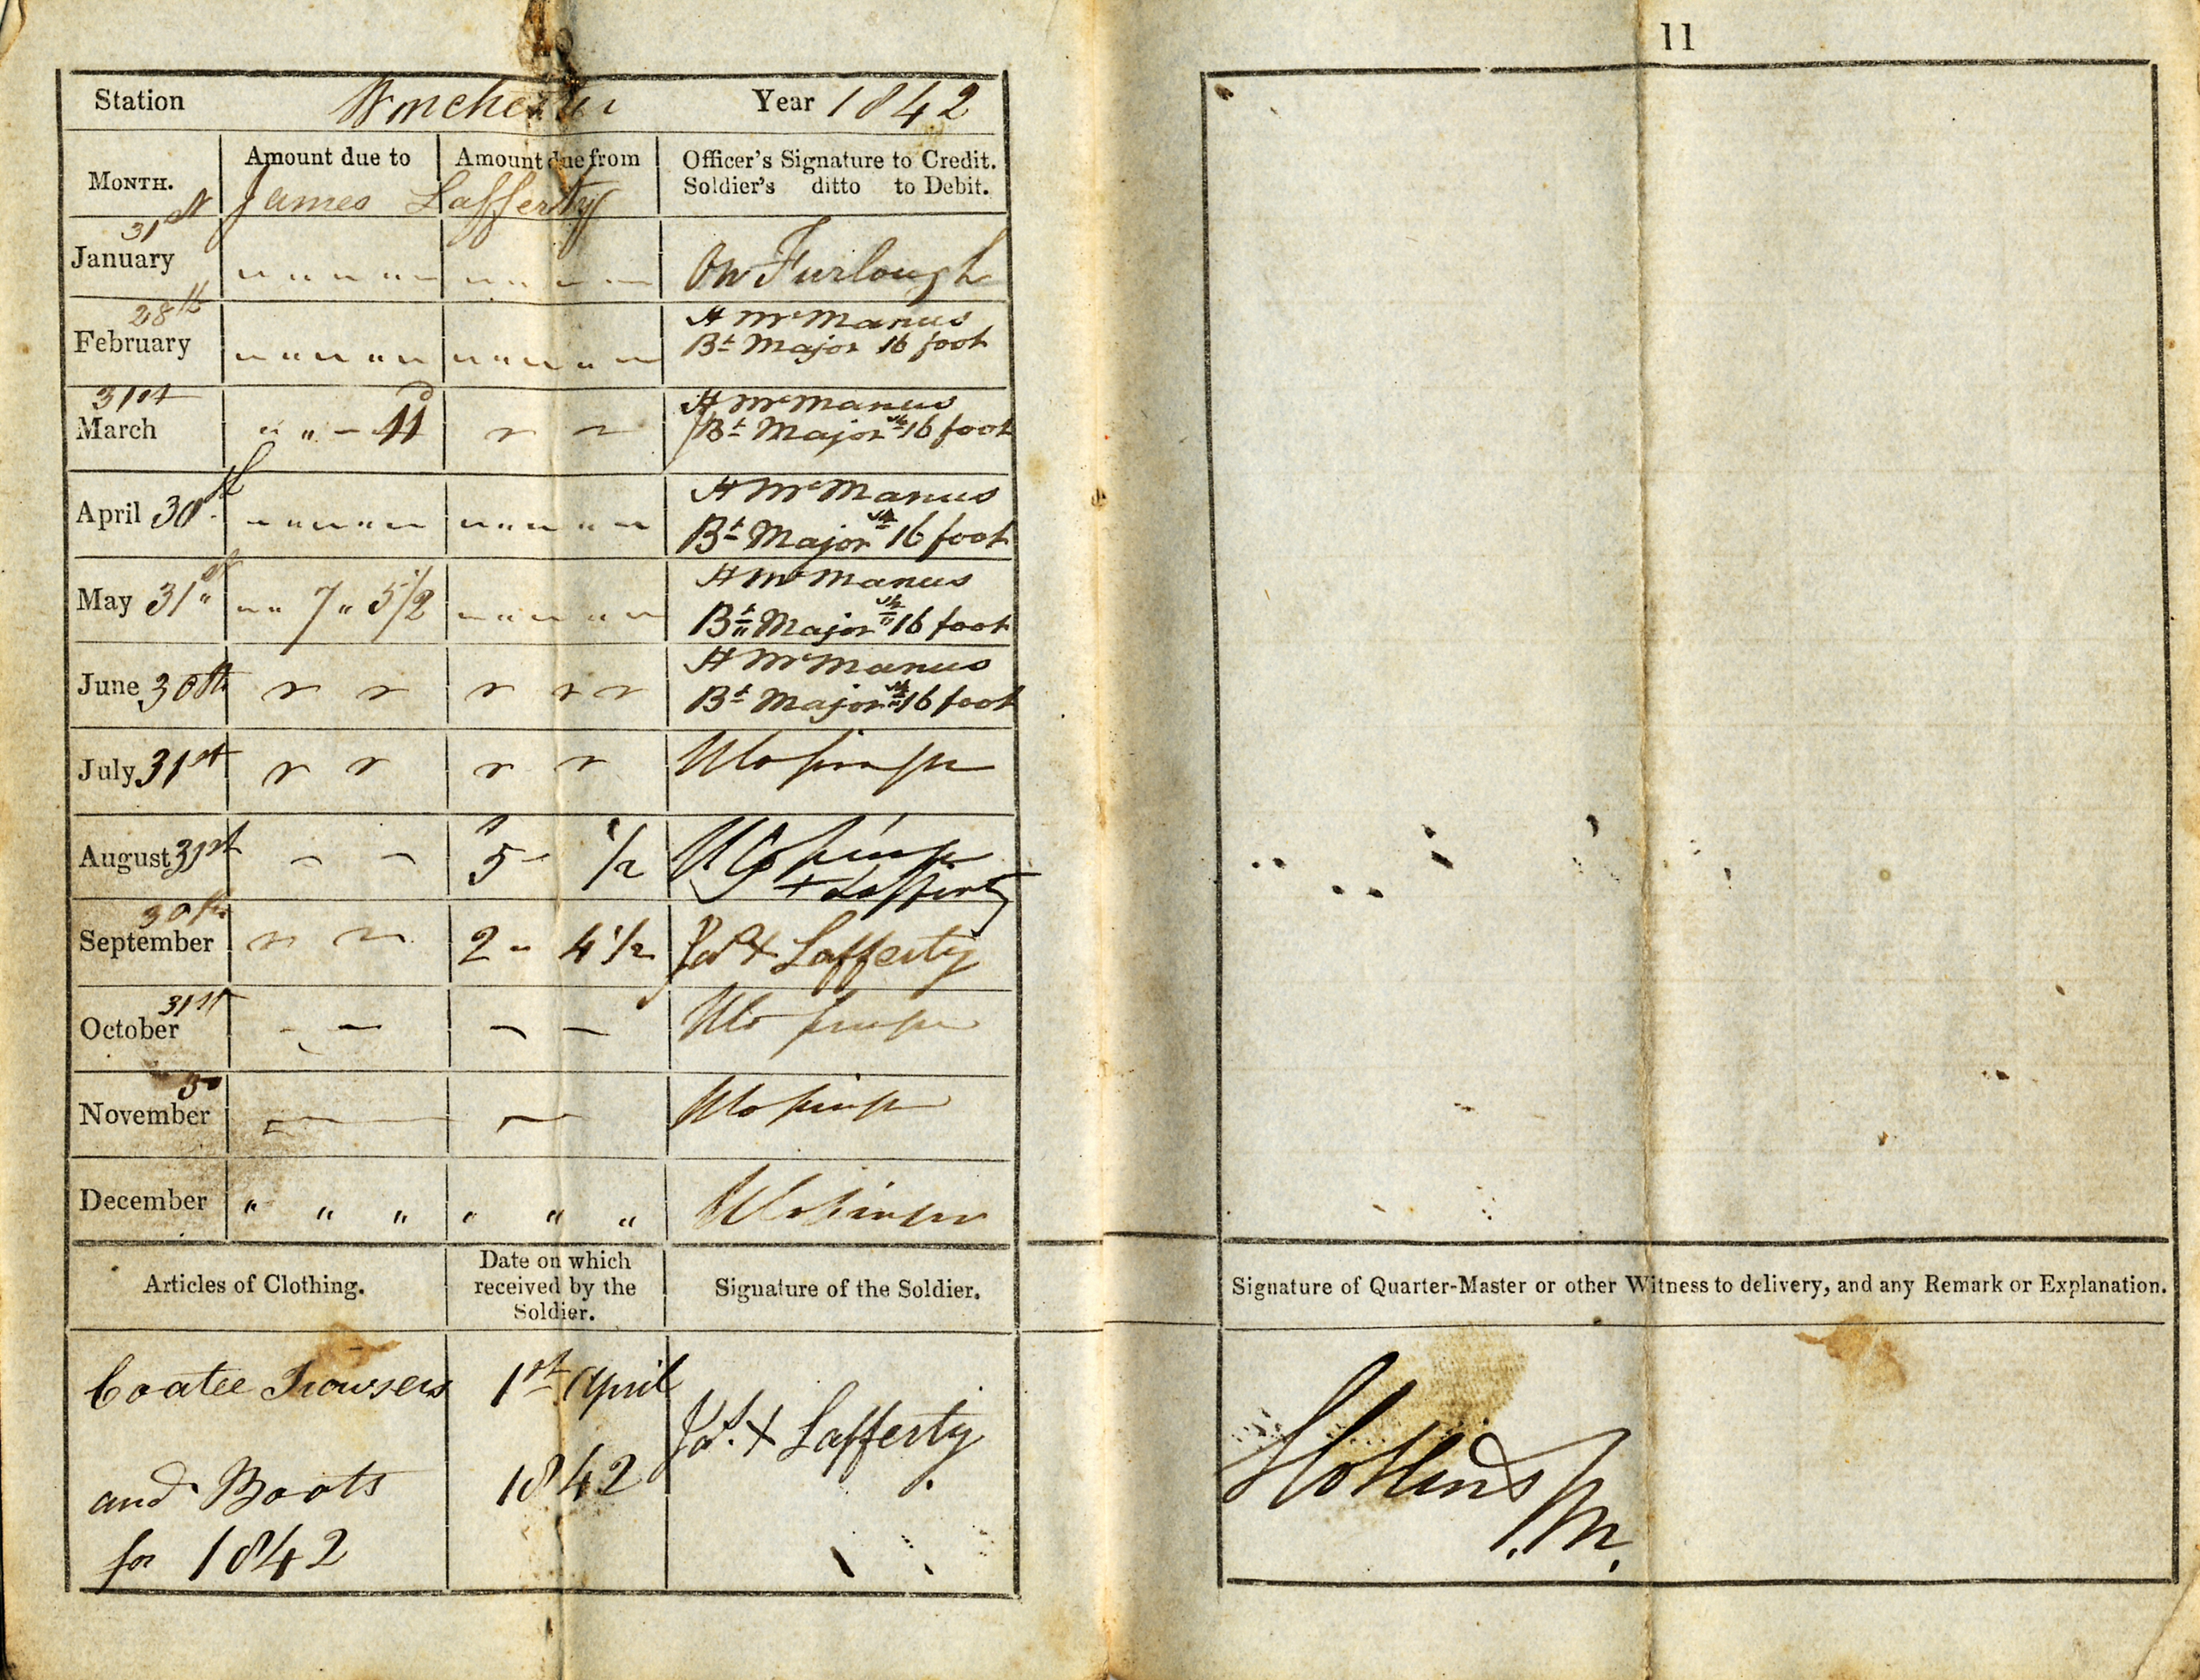 10
Station Winchester Year 1842
MONTH. Amount due to Amount due from Officer's Signature to Credit.
Soldier's ditto to Debit.
James Lafferty
January 31st On Furlough
February 28th A McManus
Bt Major 16 foot
March 31st " " - 11d A McManus
Bt Major 16 foot
April 30th A McManus
Bt Major 16 foot
May 31st " " 7 " 5 1/2 A McManus
Bt Major 16 foot
June 30th A McManus
Bt Major 16 foot
July 31st
August 31st 5 - 1/2
+ Lafferty
September 30th 2 - 4 1/2 Jas + Lafferty
October 31st
November 30
December " " " " " "
Articles of Clothing. Date on which
received by the
Soldier. Signature of the Soldier.
Coatee Trowsers 1st April
Jas. + Lafferty
and Boots 1842
for 1842
11
Signature of Quarter-Master or other Witness to delivery, and any Remark or Explanation.